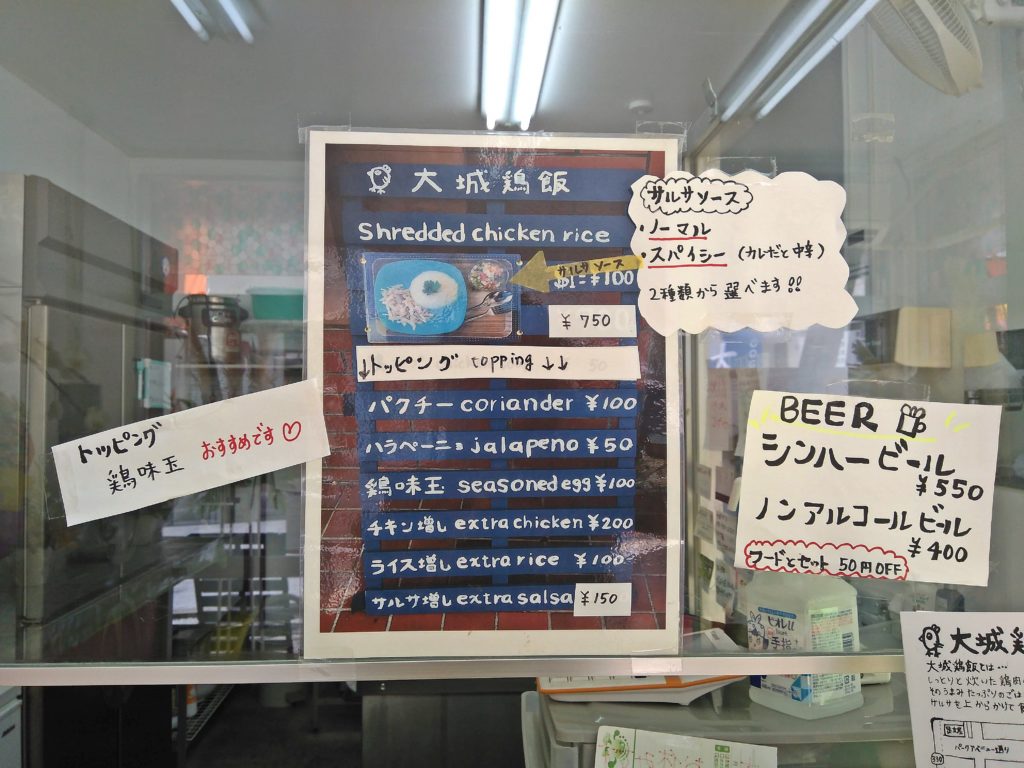 大城鶏飯
Shredded chicken rice
サルサソース
¥100
¥750
↓トッピング topping ↓↓
パクチー coriander ¥100
ハラペーニョ jalapeno ¥50
鶏味玉 seasoned egg ¥100
チキン増し extra chicken ¥200
ライス増し extra rice ¥100
サルサ増し extra salsa ¥150
サルサソース
・ノーマル
・スパイシー (カレだと中辛)
2種類から選べます!!
トッピング
鶏味玉 おすすめです♡
BEER
シンハービール
¥550
ノンアルコールビール
¥400
フードとセット 50円OFF
ビオレu
手指
大城鶏
大城鶏飯とは…
しっとり炊いた鶏肉
そのうまみたっぷりのごは
サルサを上からかけて
パークアベニュー通り
330